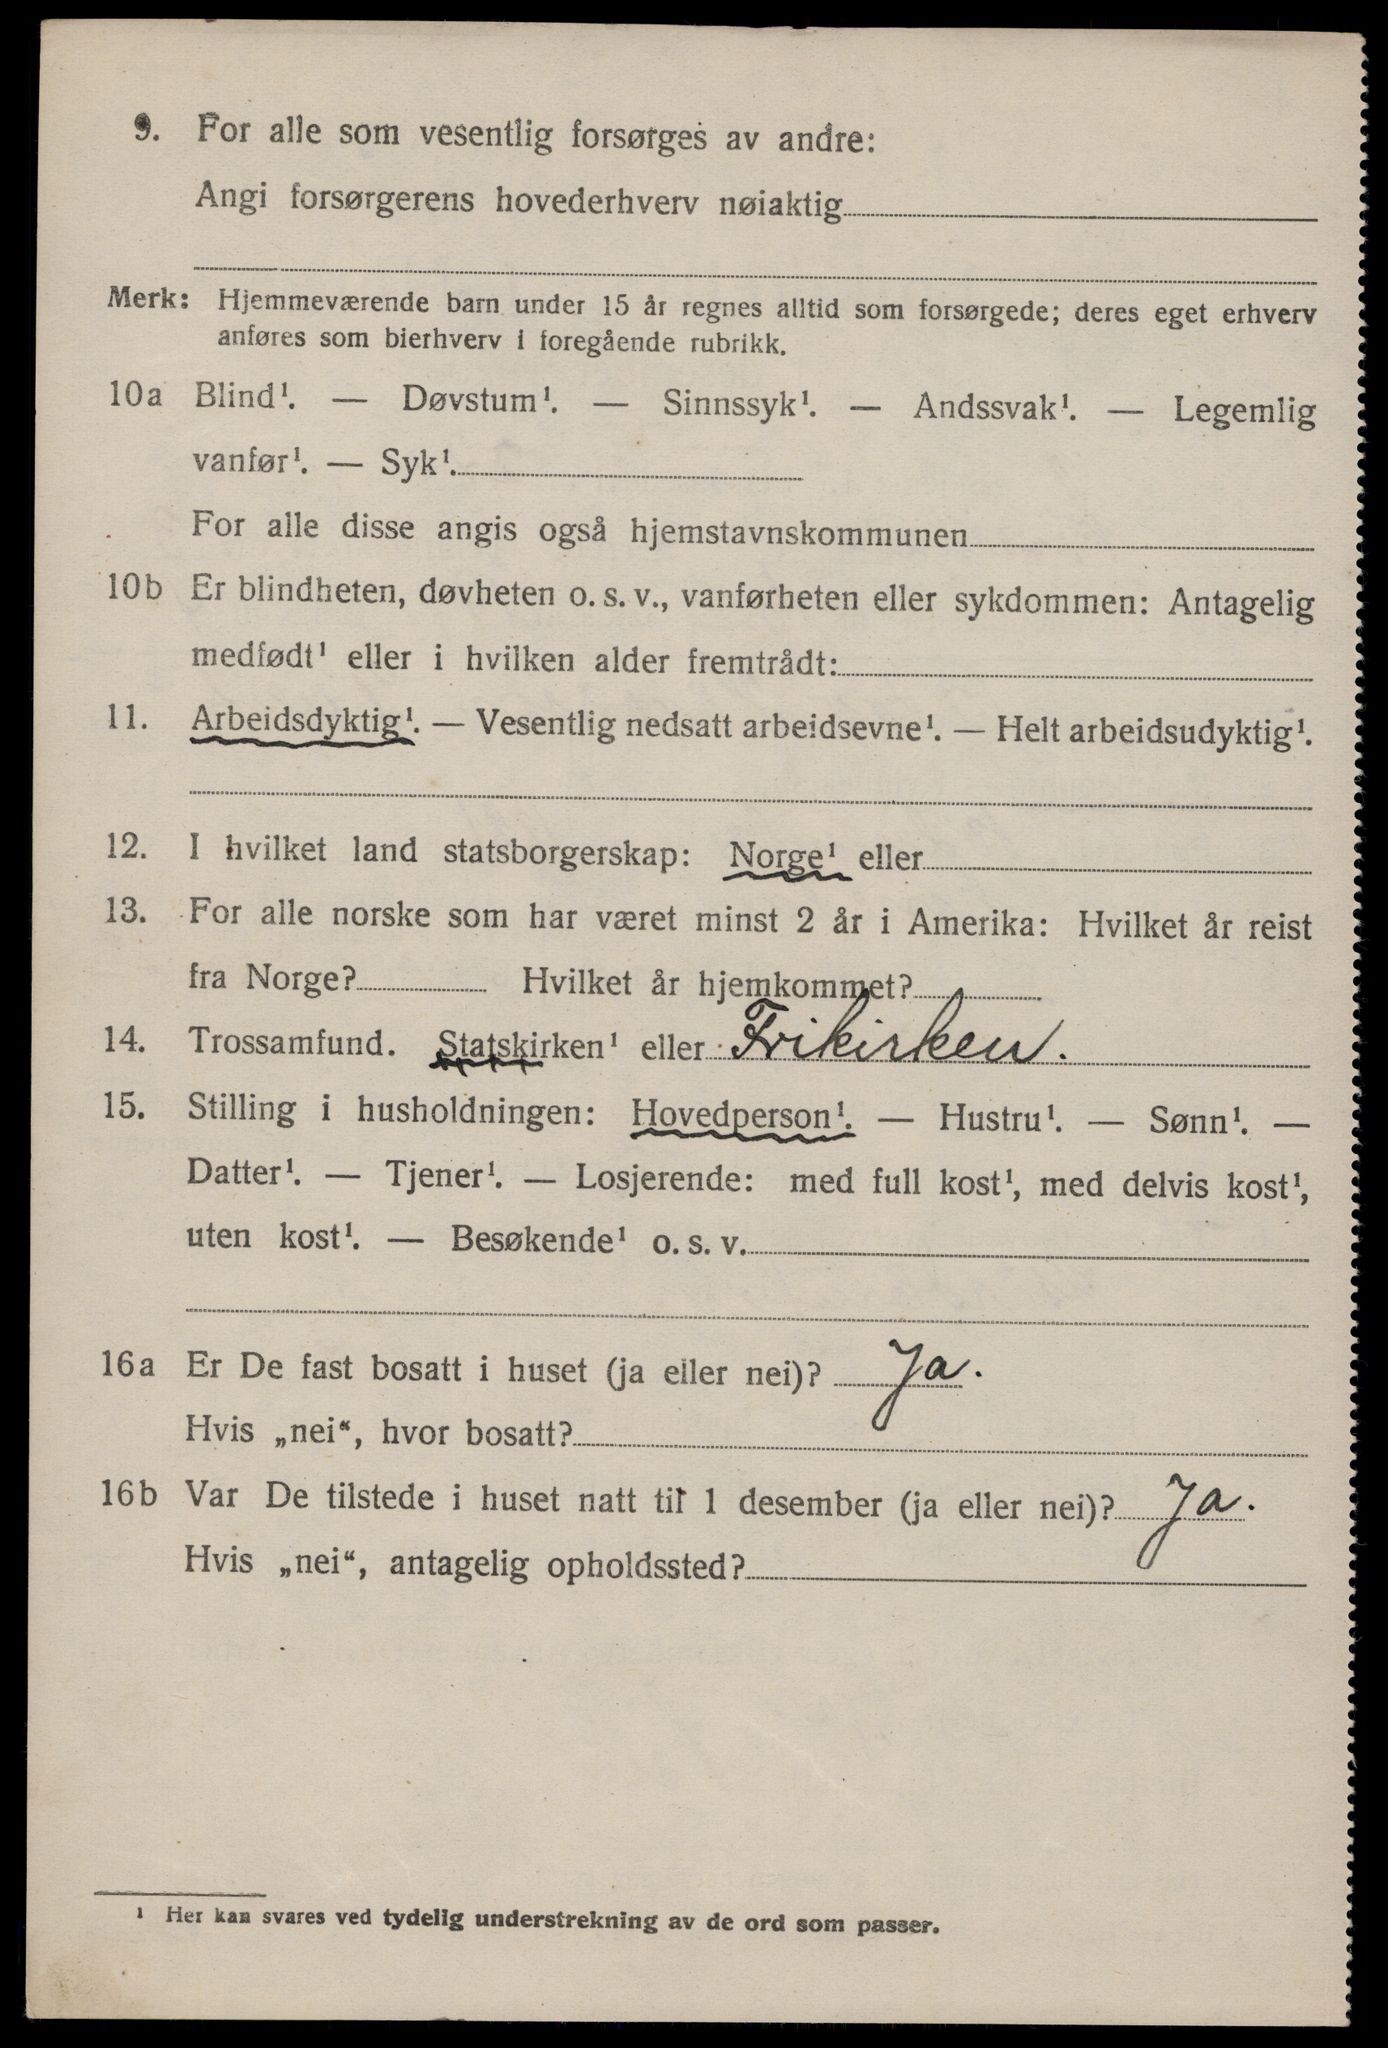 9. For alle som vesentlig forsørges av andre:
Angi forsørgerens hovederhverv nøiaktig
Merk: Hjemmeværende barn under 15 år regnes alltid som forsørgede; deres eget erhverv
anføres som bierhverv i foregående rubrikk.
10a Blind¹. — Døvstum¹. — Sinnssyk¹. — Andssvak¹. — Legemlig
vanfør¹. — Syk¹.
For alle disse angis også hjemstavnskommunen
10b Er blindheten, døvheten o. s. v., vanførheten eller sykdommen: Antagelig
medfødt¹ eller i hvilken alder fremtrådt:
11. Arbeidsdyktig¹. — Vesentlig nedsatt arbeidsevne¹. — Helt arbeidsudyktig¹.
12. I hvilket land statsborgerskap: Norge¹ eller
13. For alle norske som har været minst 2 år i Amerika: Hvilket år reist
fra Norge? Hvilket år hjemkommet?
14. Trossamfund. Statskirken¹ eller Frikirken.
15. Stilling i husholdningen: Hovedperson¹. — Hustru¹. — Sønn¹. —
Datter¹. — Tjener¹. — Losjerende: med full kost¹, med delvis kost¹,
uten kost¹. — Besøkende¹ o. s. v.
16a Er De fast bosatt i huset (ja eller nei)? Ja.
Hvis „nei“, hvor bosatt?
16b Var De tilstede i huset natt til 1 desember (ja eller nei)? Ja.
Hvis „nei“, antagelig opholdssted?
¹ Her kan svares ved tydelig understrekning av de ord som passer.